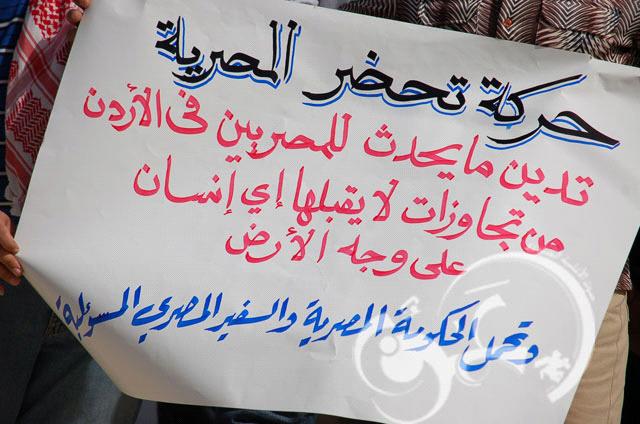 حركة تحضر المصرية
تدين ما يحدث للمصريين فى الأردن
من تجاوزات لا يقبلها إي إنسان
على وجه الأرض
وتحمل الحكومة المصرية والسفير المصري المسؤلية